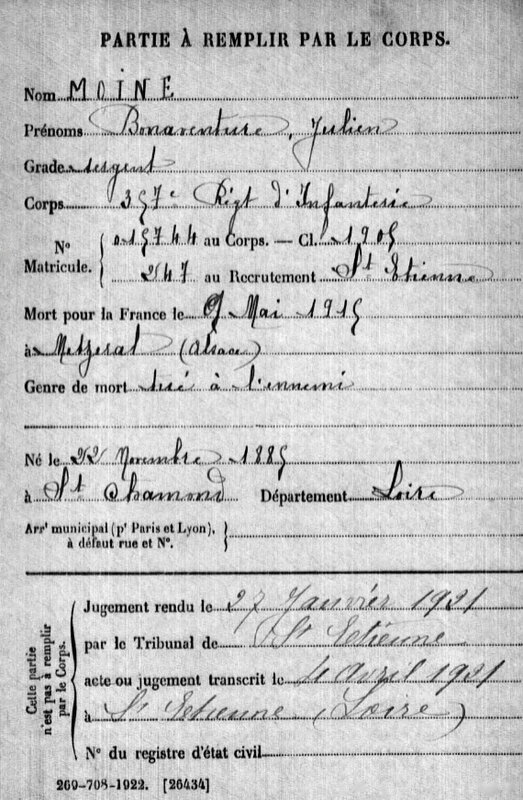 PARTIE À REMPLIR PAR LE CORPS.
Nom MOINE
Prénoms Bonaventure, Julien
Grade sergent
Corps 357e Régt d'Infanterie
No Matricule. 015744 au Corps. — Cl. 1905
247 au Recrutement St Etienne
Mort pour la France le 9 Mai 1915
à Metzeral (Alsace)
Genre de mort tué à l'ennemi
Né le 22 Novembre 1885
à St Chamond Département Loire
Arrt municipal (pr Paris et Lyon),
à défaut rue et No.
Cette partie n'est pas à remplir par le Corps.
Jugement rendu le 27 Janvier 1921
par le Tribunal de St Etienne
acte ou jugement transcrit le 4 avril 1921
à St Etienne (Loire)
No du registre d'état civil
269-708-1922. [26434]